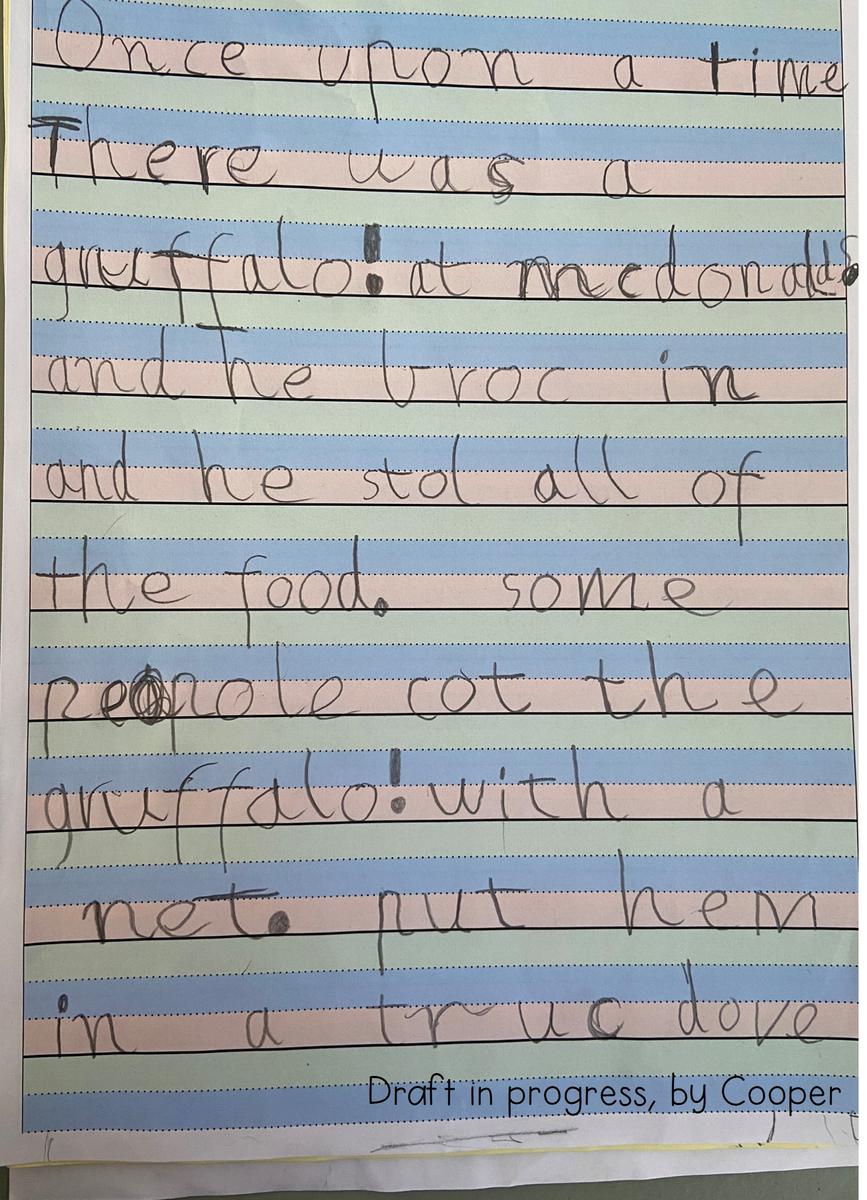 Once upon a time
There was a
gruffalo! at mcdonalds
and he broc in
and he stol all of
the food. some
peopole cot the
gruffalo! with a
net. put hem
in a truc dove
Draft in progress, by Cooper